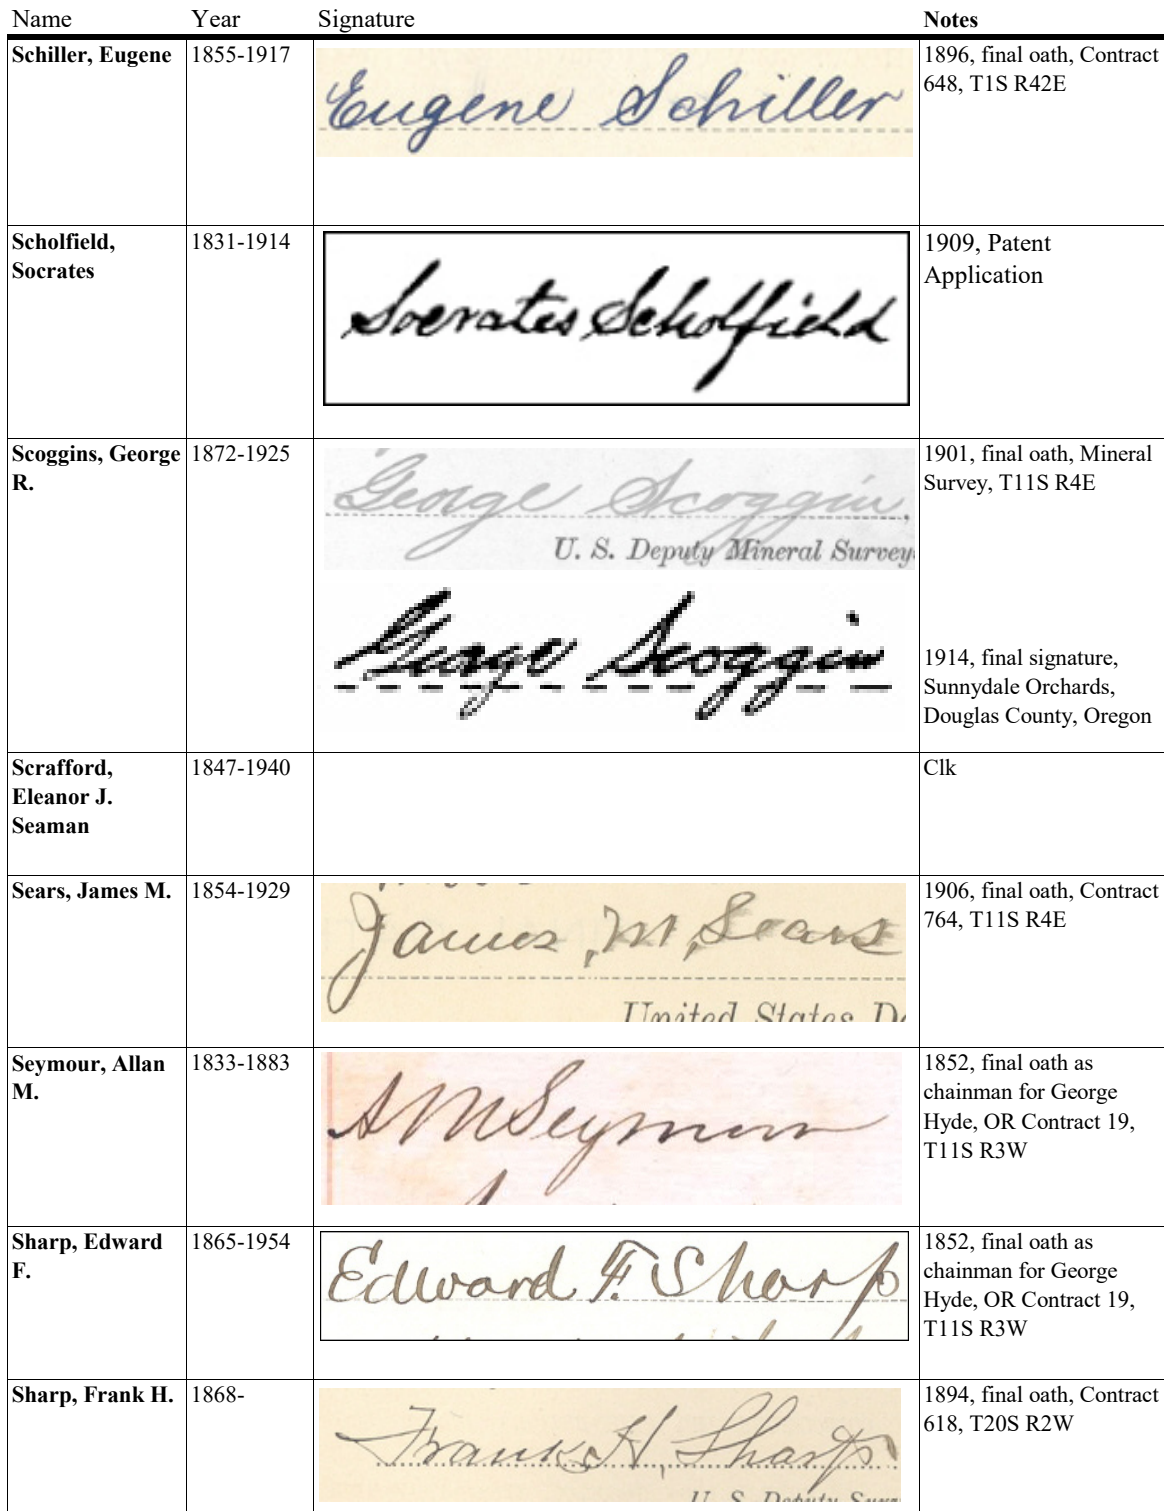 Name Year Signature Notes
Schiller, Eugene 1855-1917 Eugene Schiller 1896, final oath, Contract
648, T1S R42E
Scholfield, 1831-1914 Socrates Scholfield 1909, Patent
Socrates Application
Scoggins, George 1872-1925 George Scoggin 1901, final oath, Mineral
R. Survey, T11S R4E
U. S. Deputy Mineral Survey
George Scoggin
1914, final signature,
Sunnydale Orchards,
Douglas County, Oregon
Scrafford, 1847-1940 Clk
Eleanor J.
Seaman
Sears, James M. 1854-1929 James, M, Sears 1906, final oath, Contract
764, T11S R4E
United States De
Seymour, Allan 1833-1883 A M Seymour 1852, final oath as
M. chainman for George
Hyde, OR Contract 19,
T11S R3W
Sharp, Edward 1865-1954 Edward F. Sharp 1852, final oath as
F. chainman for George
Hyde, OR Contract 19,
T11S R3W
Sharp, Frank H. 1868- Frank H. Sharp 1894, final oath, Contract
618, T20S R2W
U. S. Deputy Surv